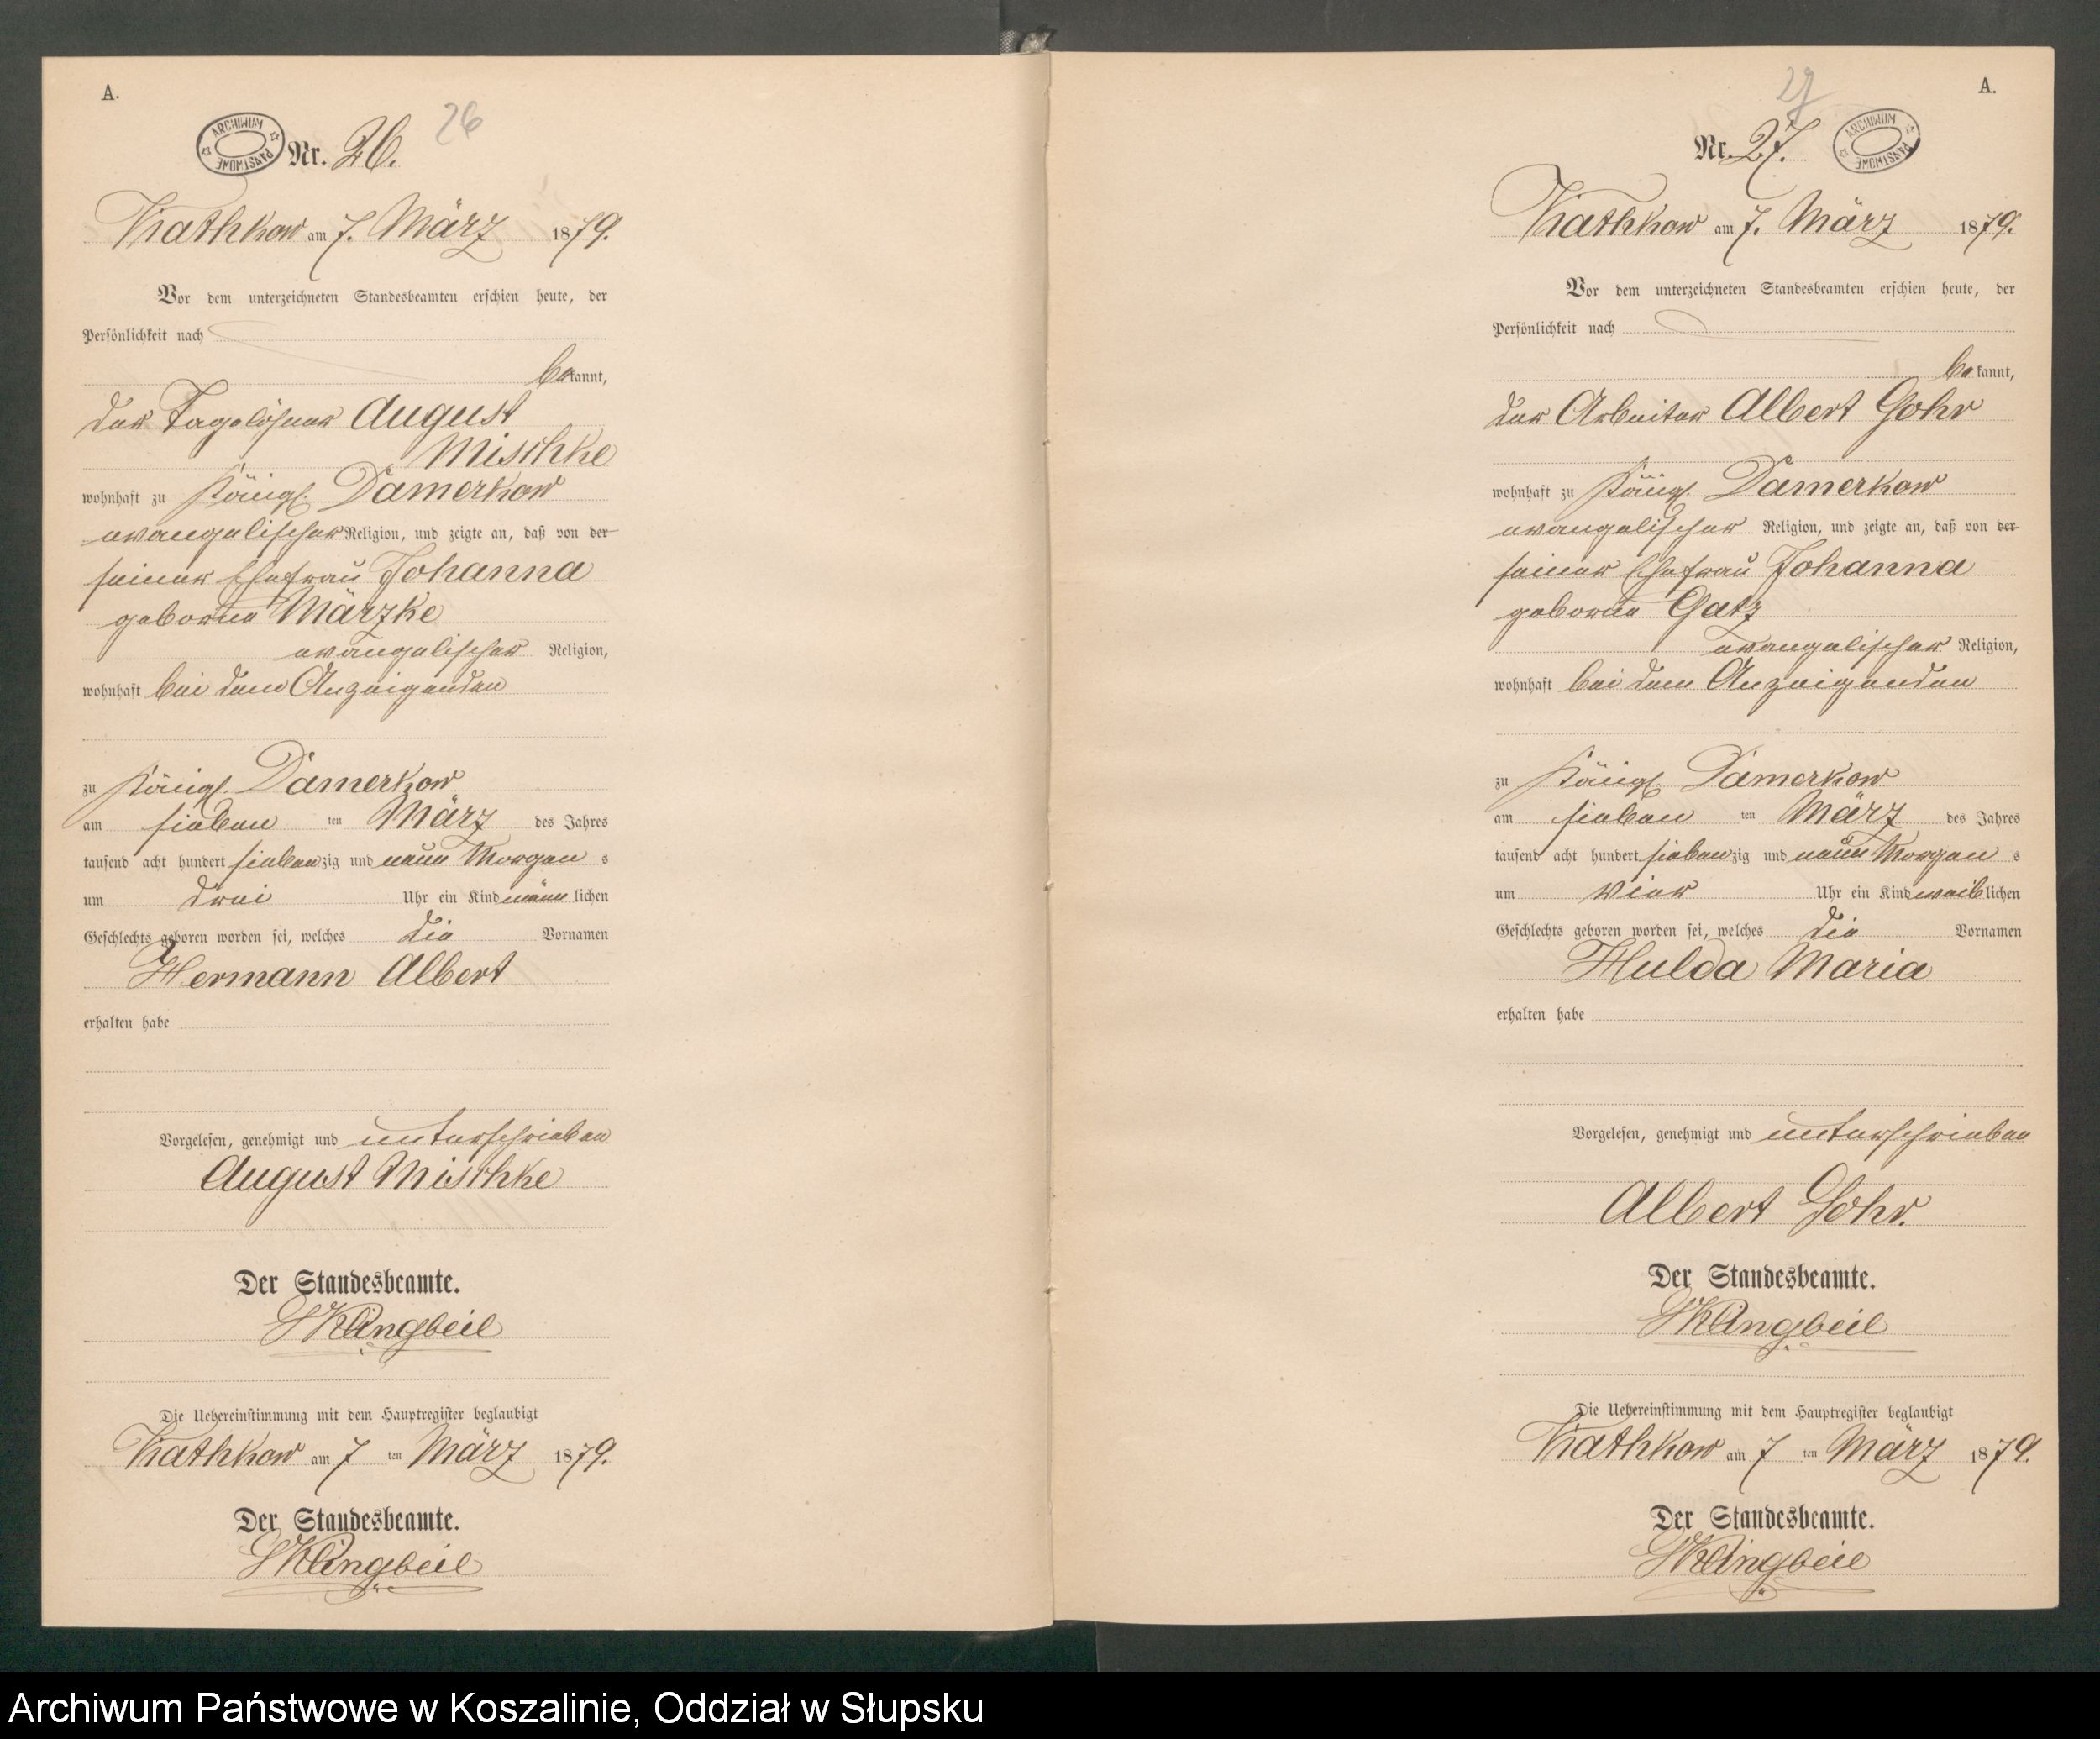 A.
ARCHIWUM PAŃSTWOWE
Nr. 26.
26
Wathkow am 7. März 1879.
Vor dem unterzeichneten Standesbeamten erschien heute, der
Persönlichkeit nach
bekannt,
der Tagelöhner August
Mischke
wohnhaft zu Königl. Damerkow
evangelischer Religion, und zeigte an, daß von der
seiner Ehefrau Johanna
geborne Märzke
evangelischer Religion,
wohnhaft bei dem Anzeigenden
zu Königl. Damerkow
am sieben ten März des Jahres
tausend acht hundert siebenzig und neun Morgen s
um drei Uhr ein Kind männlichen
Geschlechts geboren worden sei, welches die Vornamen
Hermann Albert
erhalten habe
Vorgelesen, genehmigt und unterschrieben
August Mischke
Der Standesbeamte.
Klingbeil
Die Uebereinstimmung mit dem Hauptregister beglaubigt
Wathkow am 7 ten März 1879.
Der Standesbeamte.
Klingbeil
27
A.
Nr. 27.
ARCHIWUM PAŃSTWOWE
Wathkow am 7. März 1879.
Vor dem unterzeichneten Standesbeamten erschien heute, der
Persönlichkeit nach
bekannt,
der Arbeiter Albert Gohr
wohnhaft zu Königl. Damerkow
evangelischer Religion, und zeigte an, daß von der
seiner Ehefrau Johanna
geborne Gatz
evangelischer Religion,
wohnhaft bei dem Anzeigenden
zu Königl. Damerkow
am sieben ten März des Jahres
tausend acht hundert siebenzig und neun Morgen s
um vier Uhr ein Kind weiblichen
Geschlechts geboren worden sei, welches die Vornamen
Hulda Maria
erhalten habe
Vorgelesen, genehmigt und unterschrieben
Albert Gohr.
Der Standesbeamte.
Klingbeil
Die Uebereinstimmung mit dem Hauptregister beglaubigt
Wathkow am 7 ten März 1879.
Der Standesbeamte.
Klingbeil
Archiwum Państwowe w Koszalinie, Oddział w Słupsku